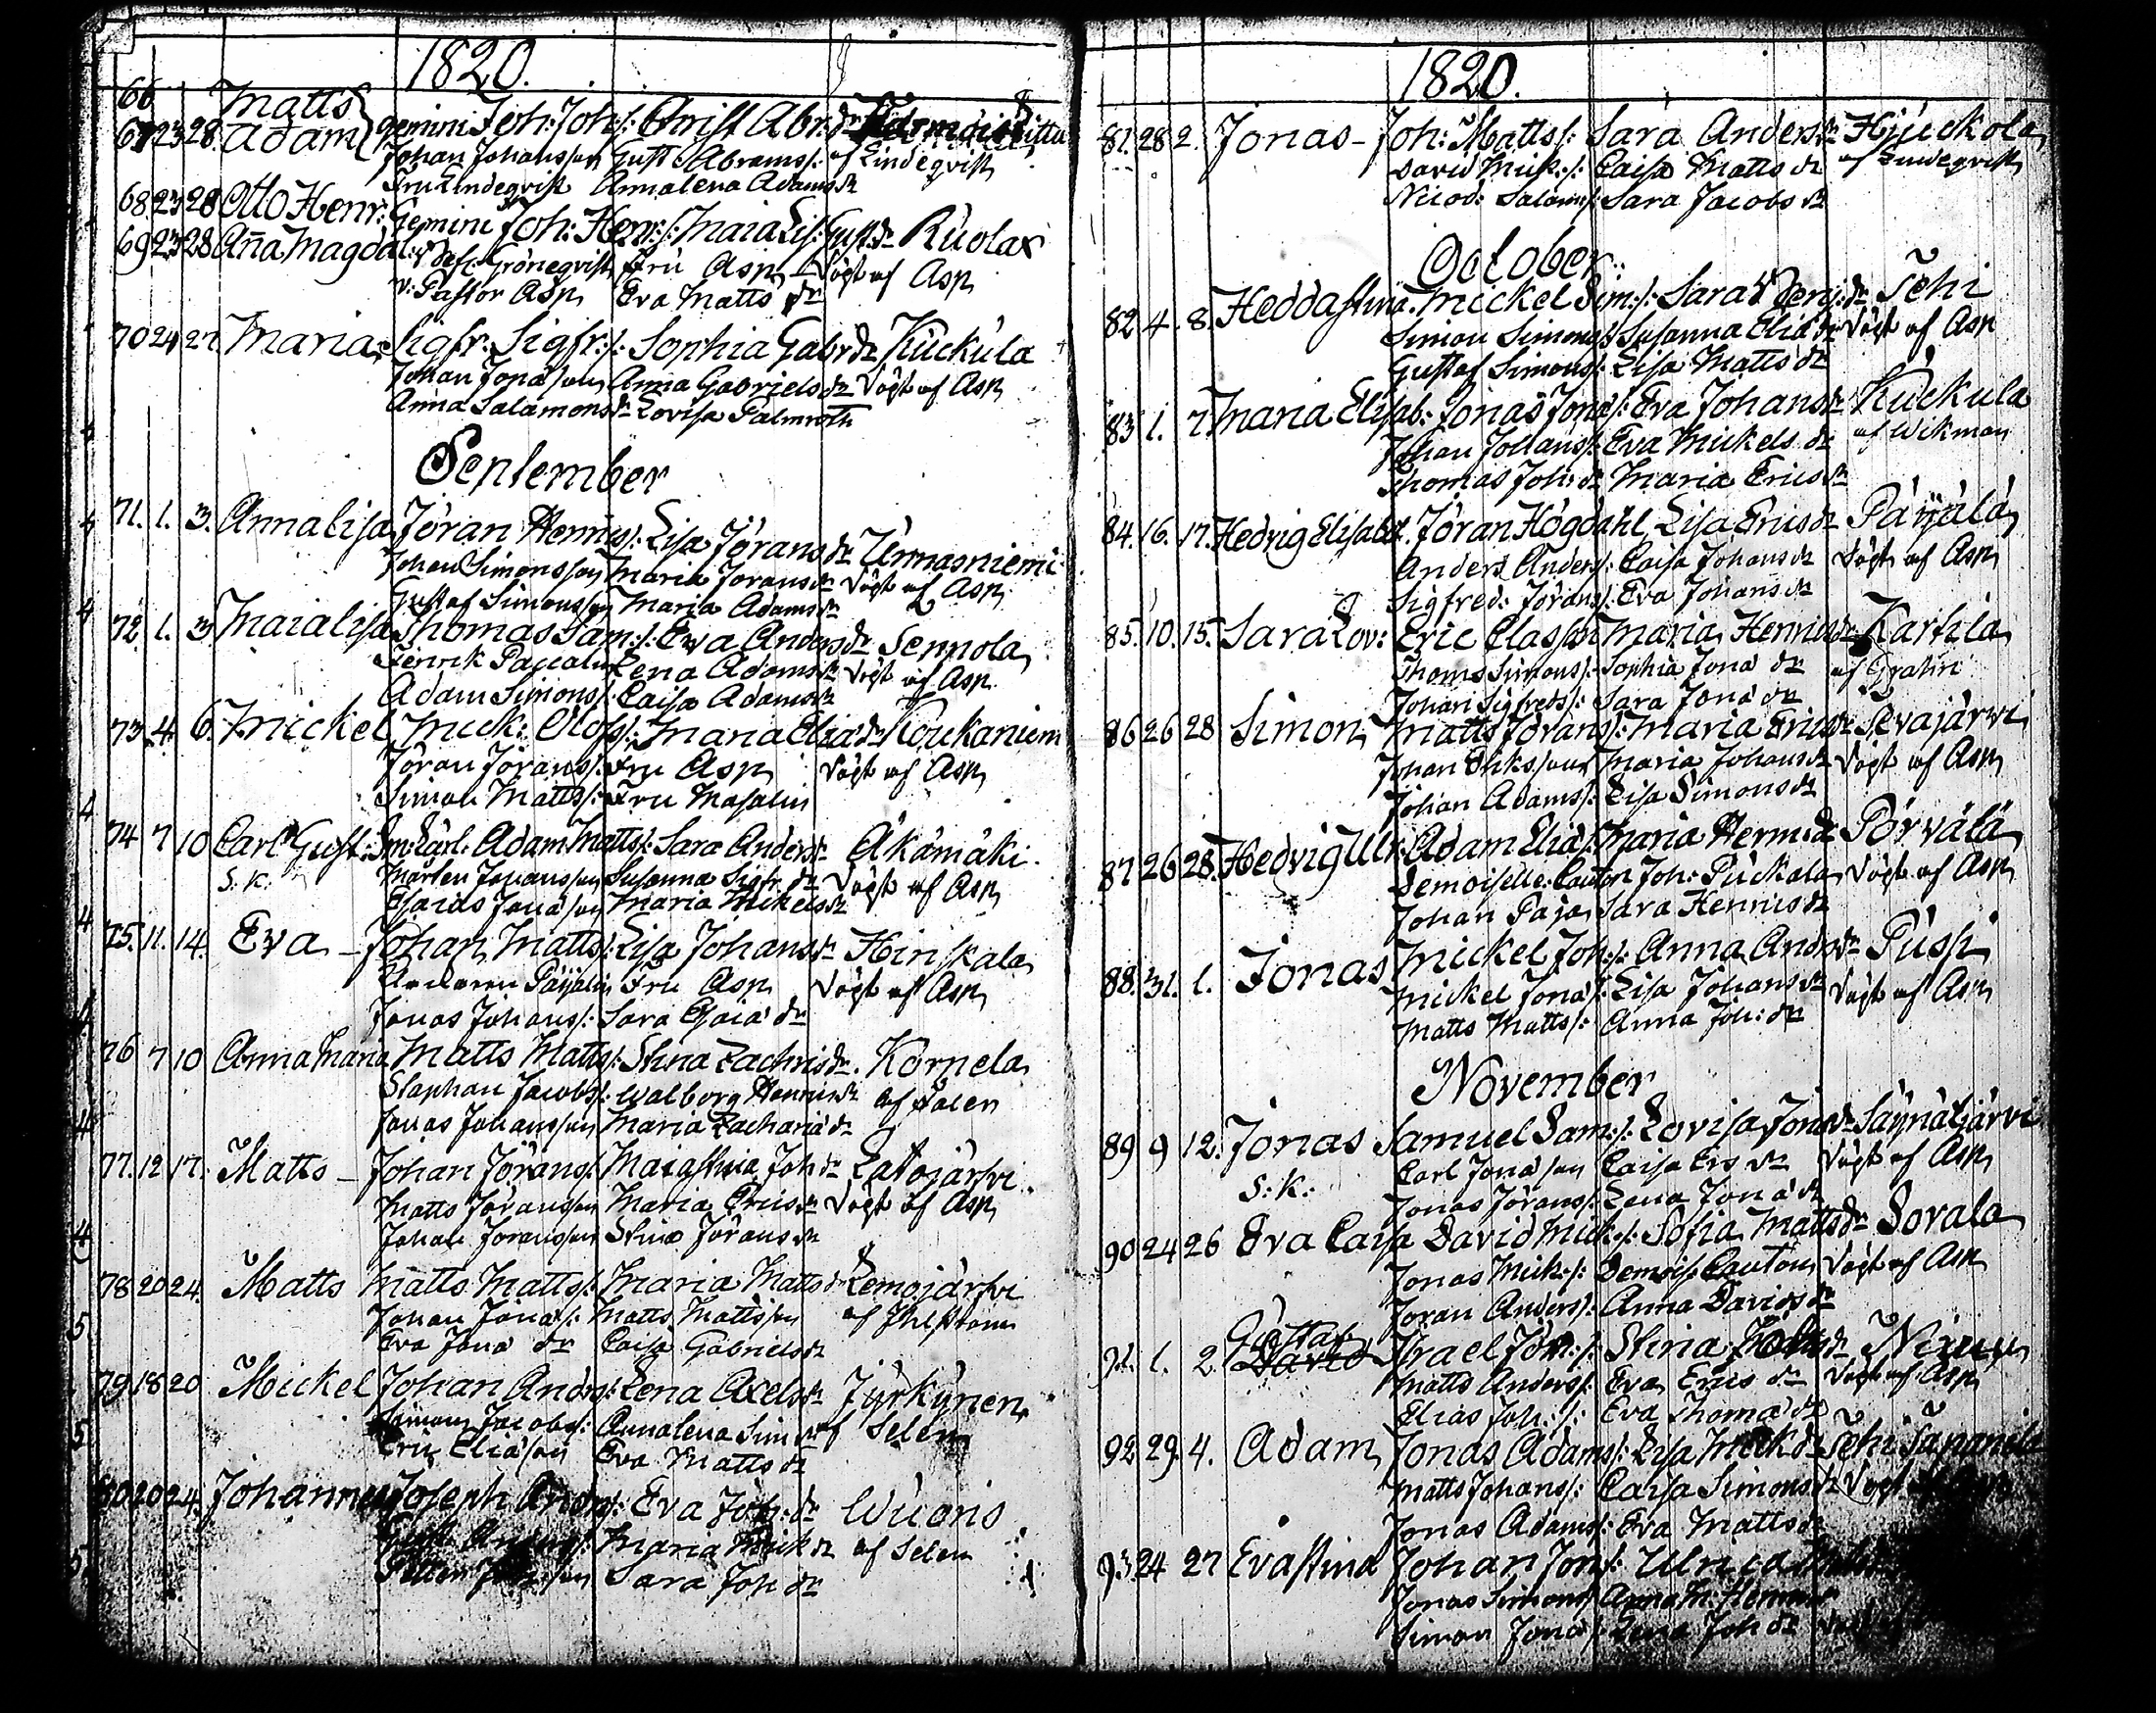 1820.
66 Matts
67 23 28. Adam Gemini Joh: Joh:s/: Christ Abr:dr
Johan Johansson Gust Abrams/: af Lindeqvist
Fru Lindeqvist Annalena Adamsdr
68 23 28 Otto Henr: Gemini Joh: Henr:/: Maia Lis: Gust:dr Kuolax
69 23 28 Anna Magdal: Gröneqvist Fru Asp Döpt af Asp
V: Pastor Asp Eva Matts dr
70 24 27. Maria Sigfr: Sigfr:/: Sophia Gabrdr Kuckula
Johan Jonasson Anna Gabrielsdr Döpt af Asp
Anna Salamonsdr Lovisa Palmroth
September
71. 1. 3. Annalisa Jöran Henrics/: Lisa Jöransdr Unnasniemi
Johan Simonsson Maria Joransdr Döpt af Asp
Gustaf Simonsson Maria Adamsdr
72 1. 3 Maialisa Thomas Sam:/: Eva Andersdr Sennola
Henrik Lena Adamsdr Döpt af Asp
Adam Simons/: Caisa Adamsdr
73 4. 6. Mickel Mick: Olofs/: Maria Eliadr Koukaniem
Jöran Jörans/: Fru Asp Döpt af Asp
Simon Matts/: Fru Masalin
74 7 10 Carl Gust: Adam Matts/: Sara Andersdr Äkämäki
S: K: Mårten Johansson Susanna Sigfr: dr Döpt af Asp
Esaias Jonasson Maria Mickelsdr
75. 11. 14. Eva – Johan Matts/: Lisa Johansdr Hinskala
Fru Asp Döpt af Asp
Jonas Johans/: Sara Esaia dr
76 7 10 Anna Maria Matts Matts/: Stina Zachrisdr. Kornela
Staphan Jacobs/: Walborg Henricsdr af
Jonas Johansson Maria Zacharia dr
77. 12 17. Matts – Johan Jörans/: Maiastina Joh dr Latojärfvi
Matts Jöransson Maria Ericsdr Döpt af Asp
Johan Joransson Stina Jöransdr
78 20 24. Matts Matts Matts/: Maria Mattsdr Lemojärfvi
Johan Jona/: Matts Mattsson af
Eva Jona dr Caisa Gabrielsdr
79 18 20 Mickel Johan Anders/: Lena Axelsdr Jyrkynen
Simon Jacobs/: Annalena Sim dr af Selen
Eric Eliasson Eva Matts dr
80 20 24. Johannes Joseph Anders/: Eva Joh: dr Wuoris
Gust: Maria Mick dr af Selen
Petter Sara Joh dr
1820.
81. 28 2. Jonas – Joh: Matts/: Sara Andersdr Hjuckola
David Mick:/: Caisa Matts dr af Lindeqvist
Nicod: Salam:/: Sara Jacobsdr
October
82 4. 8. Heddastina. Mickel Sim:/: Sara Benj:dr Tehi
Simon Simons/: Susanna Eliadr Döpt af Asp
Gustaf Simons/: Lisa Matts dr
83 1. 7 Maria Elisab: Jonas Jona/: Eva Johansdr Kuckula
Johan Johans/: Eva Mickels dr af Wikman
Thomas Joh: dr Maria Ericsdr
84. 16. 17. Hedvig Elisabet. Jöran Högdahl Lisa Ericsdr Päyälä
Anders Anders/: Caisa Johansdr Döpt af Asp
Sigfred: Jörans/: Eva Johansdr
85. 10. 15. Sara Lov: Eric Classon Maria Henricsdr Kartila
Thoms Simons/: Sophia Jona dr af Grahn
Johan Sigfreds/: Sara Jona dr
86 26 28 Simon Matts Jörans/: Maria Ericsdr Sevajärvi
Johan Maria Johansdr Döpt af Asp
Johan Adams/: Lisa Simonsdr
87 26 28. Hedvig Ulr: Adam Elia/: Maria Herm:dr Pörvälä
Demoiselle: Cauton Joh: Puckala Döpt af Asp
Johan Paja Sara Henricsdr
88. 31. 1. Jonas Mickel Joh:/: Anna Andsdr Puspi
Mickel Jona/: Lisa Johansdr Döpt af Asp
Matts Matts/: Anna Joh: dr
November
89 9 12. Jonas Samuel Sam:/: Lovisa Jonadr Säynätjärvi
S: K: Carl Jonasson Caisa Ers dr Döpt af Asp
Jonas Jörans/: Lena Jona dr
90 24 26 Eva Caisa David Mick:/: Sofia Mattsdr Sorala
Jonas Mick:/: Demois: Cauton Döpt af Asp
Joran Anders/: Anna Davidsdr
91. 1. 2 Gustaf David Israel Jör:/: Stina dr
Matts Anders/: Eva Erics dr Döpt af Asp
Elias Joh:/: Eva Thoma dr
92 29. 4. Adam Jonas Adams/: Lisa Mick dr Tehi Tapanila
Matts Johans/: Caisa Simonsdr Döpt
Jonas Adams/: Eva Mattsdr
93 24 27 Evastina Johan Jon/: Ulrica
Jonas Simons/: Anna M:
Simon Jona/: Lena Joh dr